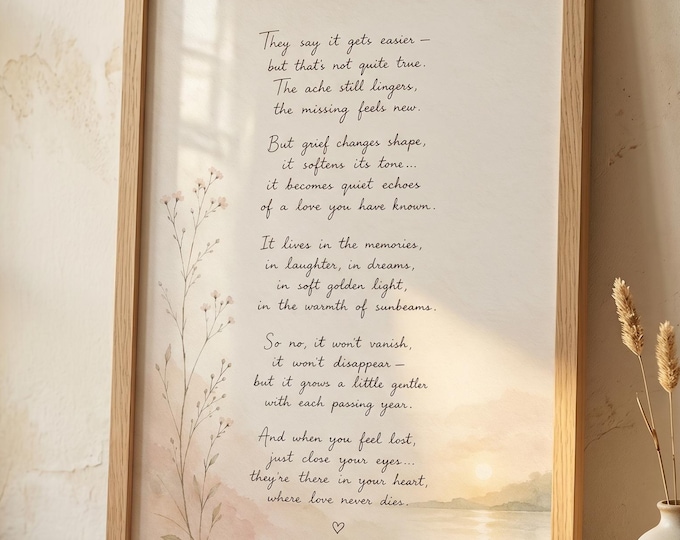 They say it gets easier —
but that's not quite true.
The ache still lingers,
the missing feels new.
But grief changes shape,
it softens its tone...
it becomes quiet echoes
of a love you have known.
It lives in the memories,
in laughter, in dreams,
in soft golden light,
in the warmth of sunbeams.
So no, it won't vanish,
it won't disappear —
but it grows a little gentler
with each passing year.
And when you feel lost,
just close your eyes...
they're there in your heart,
where love never dies.